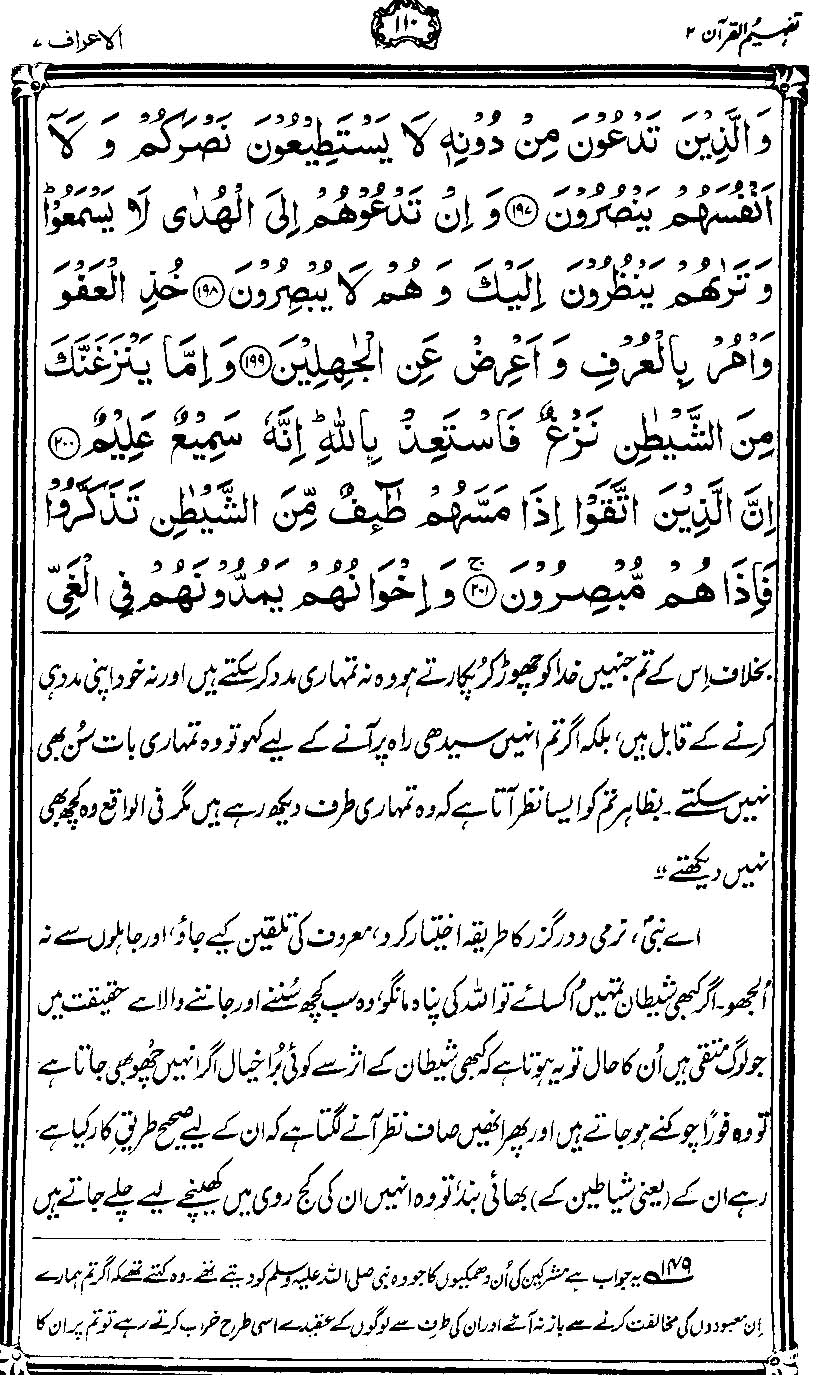 تفہیم القرآن ۲
۱۱۰
الاعراف ۷
وَالَّذِيْنَ تَدْعُوْنَ مِنْ دُوْنِهٖ لَا يَسْتَطِيْعُوْنَ نَصْرَكُمْ وَ لَآ
اَنْفُسَهُمْ يَنْصُرُوْنَ ﴿۱۹۷﴾ وَ اِنْ تَدْعُوْهُمْ اِلَى الْهُدٰى لَا يَسْمَعُوْاؕ
وَ تَرٰىهُمْ يَنْظُرُوْنَ اِلَيْكَ وَ هُمْ لَا يُبْصِرُوْنَ ﴿۱۹۸﴾ خُذِ الْعَفْوَ
وَاْمُرْ بِالْعُرْفِ وَ اَعْرِضْ عَنِ الْجٰهِلِيْنَ ﴿۱۹۹﴾ وَ اِمَّا يَنْزَغَنَّكَ
مِنَ الشَّيْطٰنِ نَزْغٌ فَاسْتَعِذْ بِاللّٰهِؕ اِنَّهٗ سَمِيْعٌ عَلِيْمٌ ﴿۲۰۰﴾
اِنَّ الَّذِيْنَ اتَّقَوْا اِذَا مَسَّهُمْ طٰٓىِٕفٌ مِّنَ الشَّيْطٰنِ تَذَكَّرُوْا
فَاِذَا هُمْ مُّبْصِرُوْنَ ﴿۲۰۱﴾ۚ وَ اِخْوَانُهُمْ يَمُدُّوْنَهُمْ فِي الْغَيِّ
بخلاف اِس کے تم جنہیں خدا کو چھوڑ کر پکارتے ہو وہ نہ تمہاری مدد کر سکتے ہیں اور نہ خود اپنی مدد ہی
کرنے کے قابل ہیں، بلکہ اگر تم انہیں سیدھی راہ پر آنے کے لیے کہو تو وہ تمہاری بات سُن بھی
نہیں سکتے۔ بظاہر تم کو ایسا نظر آتا ہے کہ وہ تمہاری طرف دیکھ رہے ہیں مگر فی الواقع وہ کچھ بھی
نہیں دیکھتے“
اے نبیؐ، نرمی و درگزر کا طریقہ اختیار کرو، معروف کی تلقین کیے جاؤ، اور جاہلوں سے نہ
اُلجھو۔ اگر کبھی شیطان تمہیں اُکسائے تو اللہ کی پناہ مانگو، وہ سب کچھ سُننے اور جاننے والا ہے حقیقت میں
جو لوگ متقی ہیں اُن کا حال تو یہ ہوتا ہے کہ کبھی شیطان کے اثر سے کوئی بُرا خیال اگر انہیں چُھو بھی جاتا ہے
تو وہ فوراً چوکنے ہو جاتے ہیں اور پھر انھیں صاف نظر آنے لگتا ہے کہ ان کے لیے صحیح طریقِ کار کیا ہے۔
رہے ان کے (یعنی شیاطین کے) بھائی بند، تو وہ انہیں ان کی کج روی میں کھینچے لیے چلے جاتے ہیں
۱۴۹؎ یہ جواب ہے مشرکین کی اُن دھمکیوں کا جو وہ نبی صلی اللہ علیہ وسلم کو دیتے تھے۔ وہ کہتے تھے کہ اگر تم ہمارے
اِن معبودوں کی مخالفت کرنے سے باز نہ آئے اور ان کی طرف سے لوگوں کے عقیدے اسی طرح خراب کرتے رہے تو تم پر ان کا